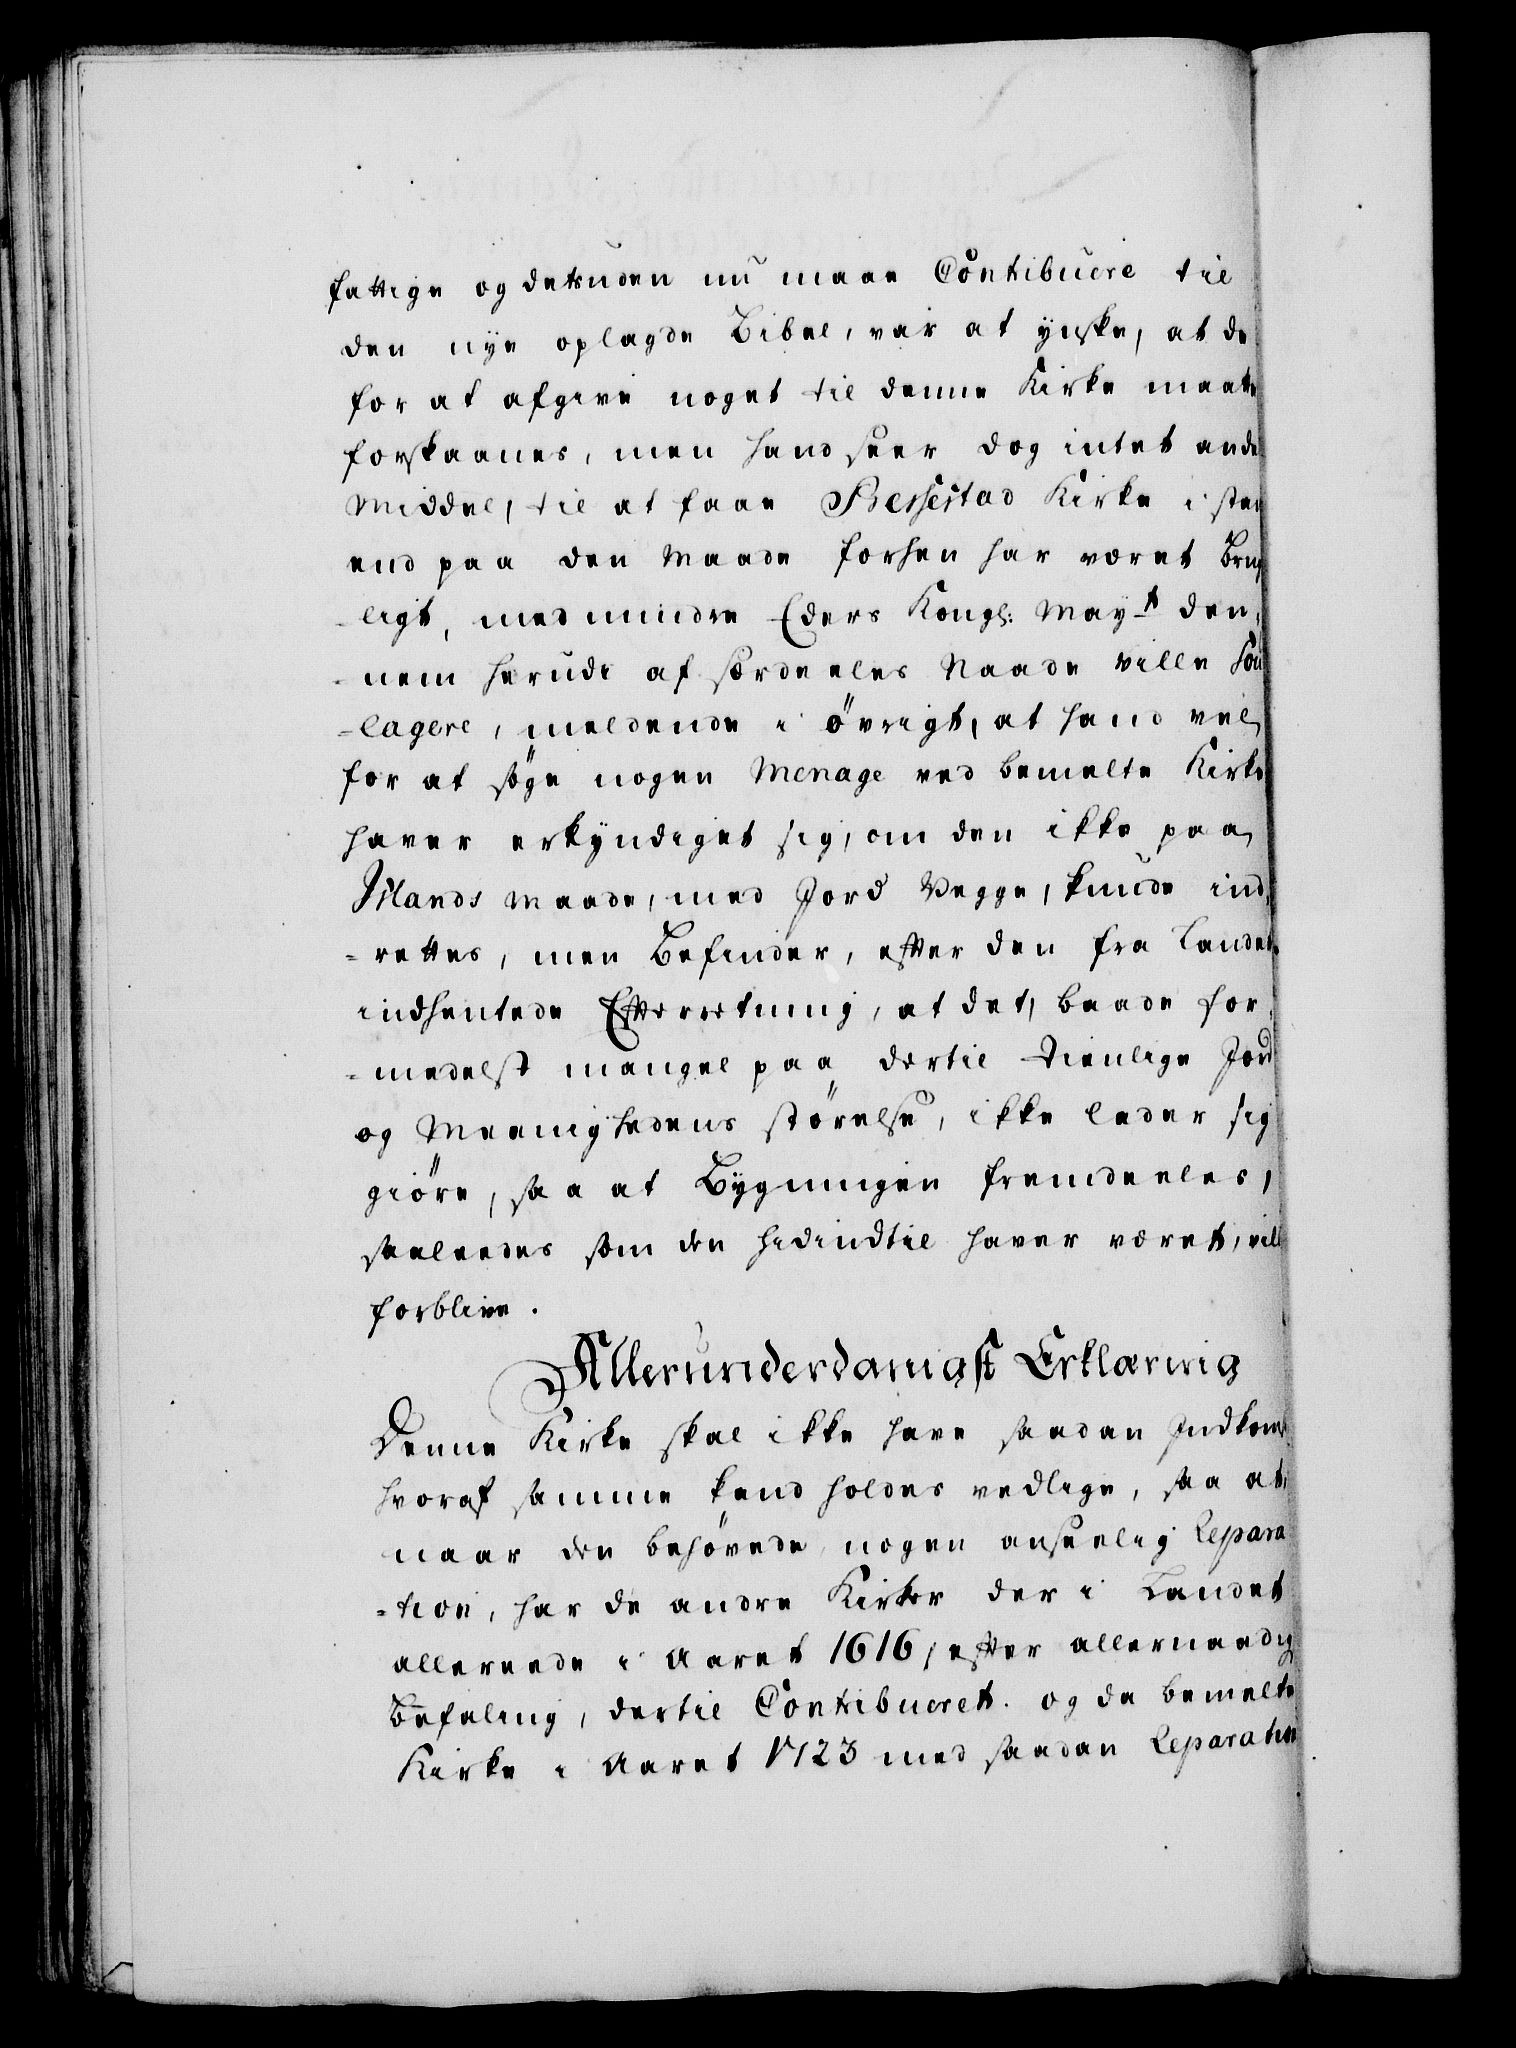 fattige og desuden nu maae Contribuere til
den nye oplagde Bibel, var at ynske, at de
for at afgive noget til denne Kirke maatte
forskaanes, men hand seer dog intet andet
Middel, til at faae Bessestad Kirke i stand
end paa den Maade forhen har været brug
-ligt, med mindre Eders Kongl: May-t den,
-nem herudi af særdeeles Naade ville Sou
-lagere, meldende i øvrigt, at hand vel
for at søge nogen Menage ved bemelte Kirke
haver erkyndiget sig, om den ikke paa
Islands maade, med Jord Vegge, kunde ind,
-rettes, men befinder, efter den fra Landet
indhentede Efterretning, at det, baade for,
-medelst mangel paa dertil tienlige Jord
og Meenighedens størelse, ikke lader sig
giøre, saa at Bygningen fremdeeles,
saaleedes som den hidindtil haver været, vill
forblive.
Allerunderdanigst Erklæring
Denne Kirke skal ikke have saadan Indkomst
hvoraf samme kand holdes vedlige, saa at
naar den behøvede nogen anseelig Repara
-tion, har de andre Kirker der i Landet
allereede i Aaret 1616, efter allernaadig
Befaling, dertil Contribueret. og da bemelte
Kirke i Aaret 1723 med saadan Reparation